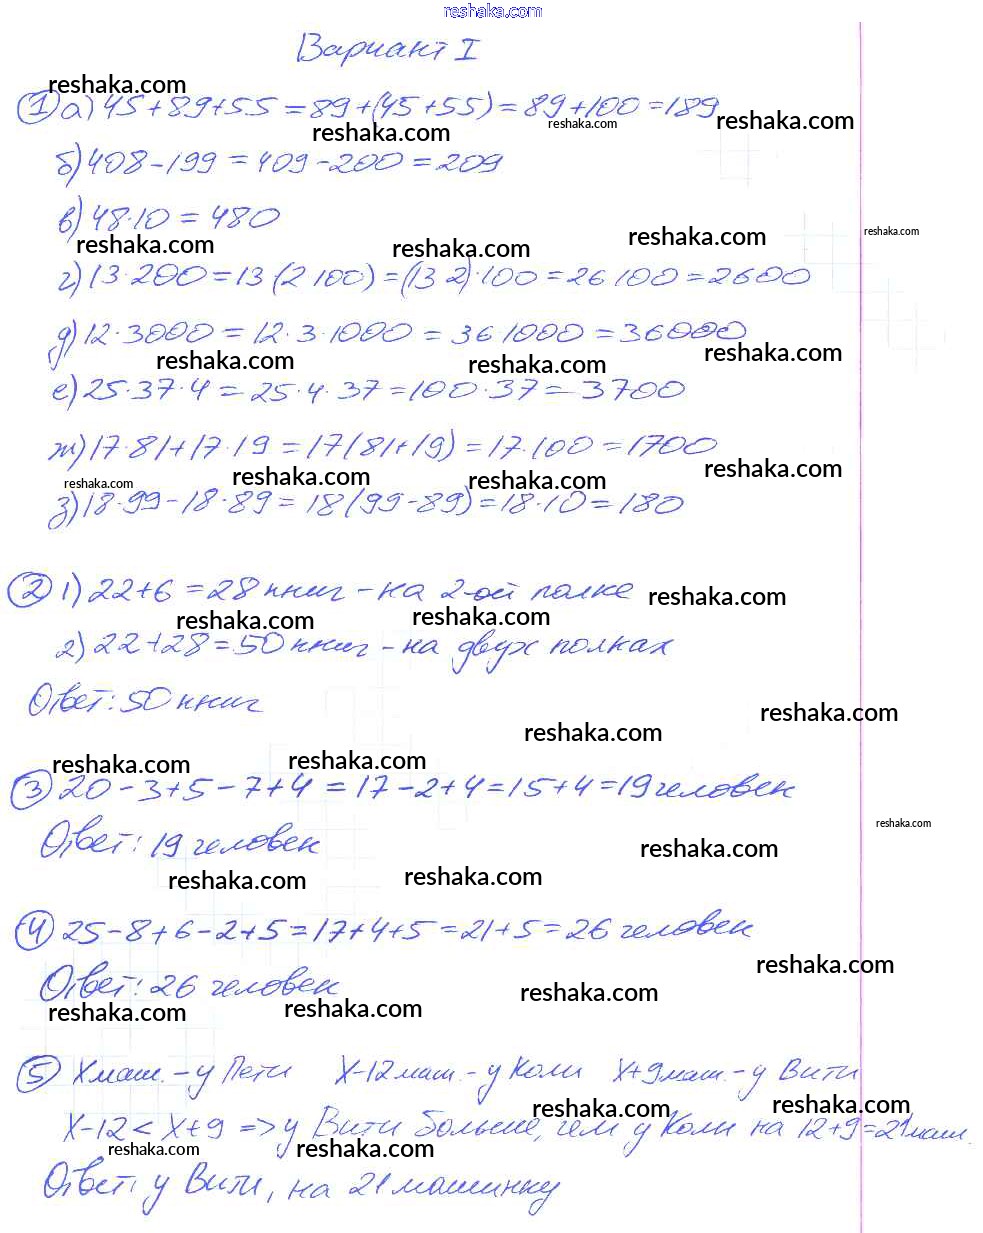 reshaka.com
Вариант I
reshaka.com
① а) 45+89+55 = 89+(45+55) = 89+100 = 189
reshaka.com reshaka.com reshaka.com
б) 408-199 = 409-200 = 209
в) 48·10 = 480
reshaka.com reshaka.com reshaka.com reshaka.com
г) 13·200 = 13 (2 100) = (13 2)·100 = 26 100 = 2600
д) 12·3000 = 12·3·1000 = 36 1000 = 36000
reshaka.com reshaka.com reshaka.com
е) 25·37·4 = 25·4·37 = 100·37 = 3700
ж) 17·81+17·19 = 17(81+19) = 17·100 = 1700
reshaka.com reshaka.com reshaka.com reshaka.com
з) 18·99-18·89 = 18(99-89) = 18·10 = 180
② 1) 22+6 = 28 книг - на 2-ой полке
reshaka.com reshaka.com reshaka.com
2) 22+28 = 50 книг - на двух полках
Ответ: 50 книг
reshaka.com reshaka.com
reshaka.com reshaka.com
③ 20-3+5-7+4 = 17-2+4 = 15+4 = 19 человек
reshaka.com
Ответ: 19 человек
reshaka.com reshaka.com reshaka.com
④ 25-8+6-2+5 = 17+4+5 = 21+5 = 26 человек
reshaka.com
Ответ: 26 человек
reshaka.com reshaka.com reshaka.com
⑤ X маш. - у Пети X-12 маш. - у Коли X+9 маш. - у Вити
reshaka.com reshaka.com
X-12 < X+9 => у Вити больше, чем у Коли на 12+9=21 маш.
reshaka.com reshaka.com
Ответ: у Вити, на 21 машинку